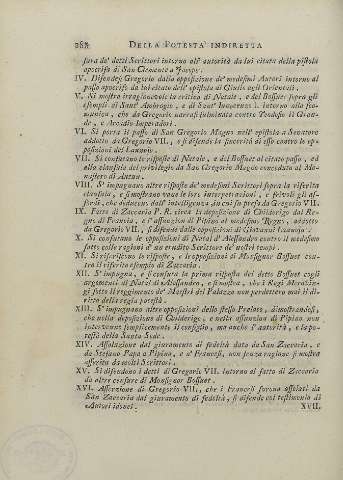 268 DELLA POTESTA' INDIRETTA
sura de' detti Scrittori intorno all' autorità da lui citata della pistola
apocrifa di San Clemente a Jacopo.
IV. Difendesi Gregorio dalla opposizione de' medesimi Autori intorno al
passo apocrifo da lui citato dell' epistola di Giulio agli Orientali.
V. Si mostra irragionevole la critica di Natale, e del Bossuet sopra gli
esempli di Sant' Ambrogio, e di Sant' Innocenzo I. intorno alla scomunica,
munica, che da Gregorio narrasi fulminata contro Teodosio il Grande,
de, e Arcadio Imperadori.
VI. Si porta il passo di San Gregorio Magno nell' epistola a Senatore
addotto da Gregorio VII., e si difende la sincerità di esso contro le opposizioni
posizioni del Launoio.
VII. Si confutano le risposte di Natale, e del Bossuet al citato passo, ed
alla clausula del privilegio da San Gregorio Magno conceduto al Monastero
nistero di Autun.
VIII. S' impugnano altre risposte de' medesimi Scrittori sopra la riferita
clausula, e si mostrano vane le loro interpretazioni, e frivoli gli sforzi,
forzi, che adducono dall' intelligenza in cui fu presa da Gregorio VII.
IX. Fatto di Zaccaria P. R. circa la deposizione di Childerigo dal Regno
gno di Francia, e l' assunzion di Pipino al medesimo Regno, addotto
da Gregorio VII., si difende dalle opposizioni di Giovanni Launoio.
X. Si confutano le opposizioni di Natal d' Alessandro contro il medesimo
fatto colle ragioni d' un erudito Scrittore de' nostri tempi.
XI. Si riferiscono le risposte, e le opposizioni di Monsignor Bossuet contra
tra il riferito esempio di Zaccaria.
XII. S' impugna, e si confuta la prima risposta del detto Bossuet cogli
argomenti di Natal d' Alessandro, e si mostra, che i Regi Merovingi
gi sotto il reggimento de' Maestri del Palazzo non perdettero mai il diritto
ritto della regia potestà.
XIII. S' impugnano altre opposizioni dello stesso Prelato, dimostrandosi,
che nella deposizione di Childerigo, e nella assunzion di Pipino non
intervenne semplicemente il consiglio, ma anche l' autorità, e la potestà
testà della Santa Sede.
XIV. Assoluzione dal giuramento di fedeltà data da San Zaccaria, e
da Stefano Papa a Pipino, e a' Francesi, non senza ragione si mostra
asserita da molti Scrittori.
XV. Si difendono i detti di Gregorio VII. intorno al fatto di Zaccaria
da altre censure di Monsignor Bossuet.
XVI. Asserzione di Gregorio VII., che i Francesi furono assoluti da
San Zaccaria dal giuramento di fedeltà, si difende col testimonio di
Autori idonei.
XVII.